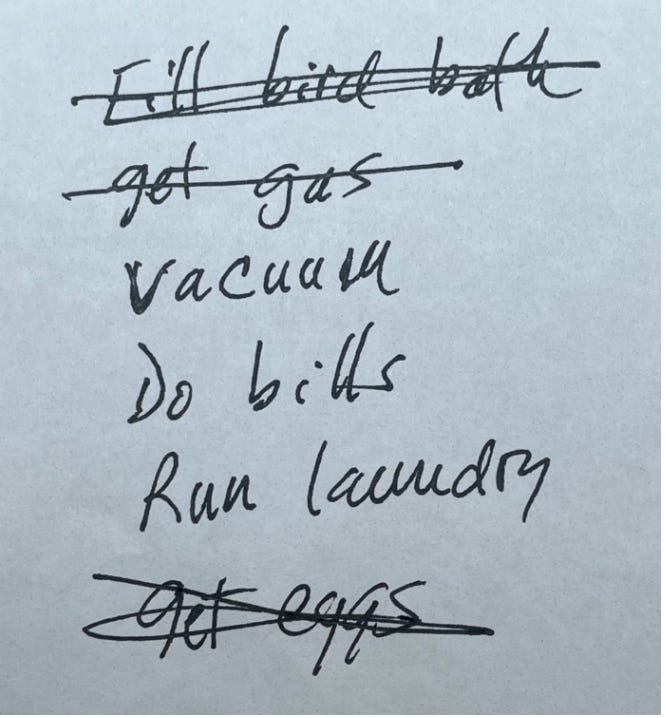 Fill bird bath
get gas
Vacuum
Do bills
Run laundry
get eggs